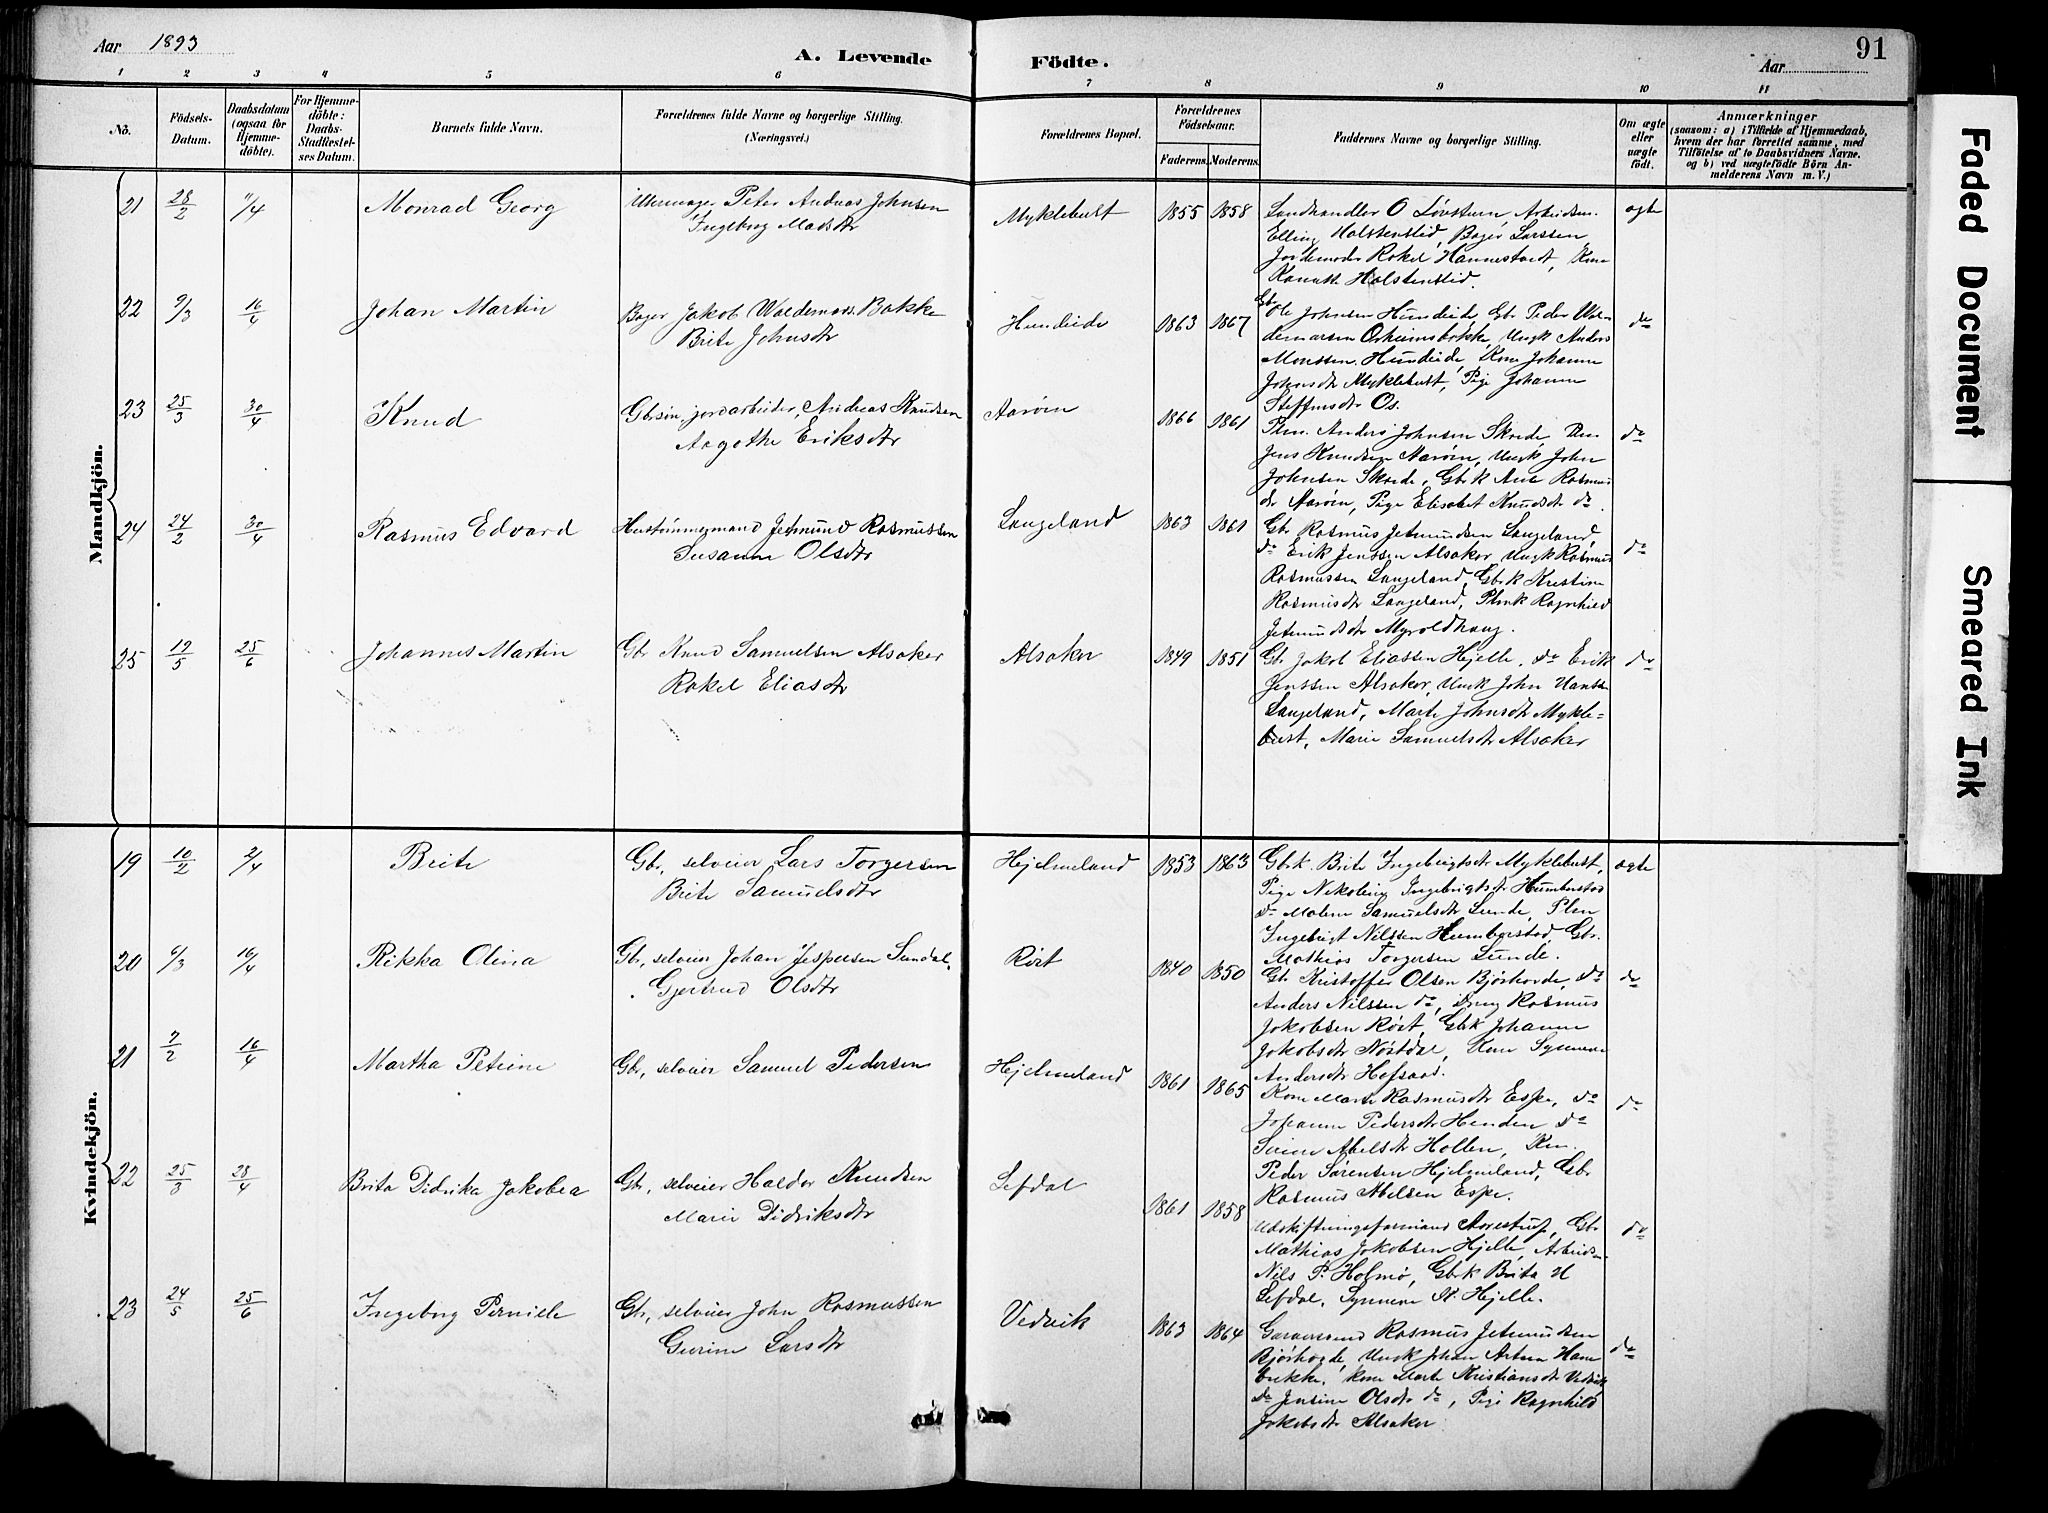 Aar 1893
A. Levende Födte.
Aar
91
1 2 3 4 5 6 7 8 9 10 11
No.
Födsels-Datum.
Daabsdatum (ogsaa for Hjemme-döbte).
For Hjemme-döbte: Daabs-Stadfæstel-ses Datum.
Barnets fulde Navn.
Forældrenes fulde Navne og borgerlige Stilling.
(Næringsvei.)
Forældrenes Bopæl.
Forældrenes Födselsaar.
Faderens. Moderens.
Faddernes Navne og borgerlige Stilling.
Om ægte eller uægte födt.
Anmærkninger
(saasom: a) i Tilfælde af Hjemmedaab, hvem der har forrettet samme, med Tilföielse af to Daabsvidners Navne, og b) ved uægtefödte Börn An-melderens Navn m. V.)
Mandkjön.
21 28/2 11/4 Monrad Georg
Uhrmager Peter Andreas Johnsen
Ingeborg Madsdtr
Myklebust 1855 1858
Landhandler O Løvsturn, Arbeidsm.
Elling Holstenstid, Bager Larssen
Jordemoder Rakel Hannestvedt, Kone
Holstenstid.
ægte
22 9/3 16/4 Johan Martin
Bager Jakob Waldemars. Bakke
Brite Johnsdtr
Hundeide 1863 1867
Gbr Ole Johnsen Hundeide, Gbr Peder Wal-
demarsen Osheimsbakke, Ungk Anders
Monssen Hundeide, Kone Johanne
Johnsdtr Myklebust, Pige Johanne
Steffensdtr Os.
do
23 25/3 30/4 Knud
Gbrsøn, jordarbeider, Andreas Knudsen
Aagothe Eriksdtr
Aarøen 1866 1861
Plm. Anders Johnsen Skrede, Plm
Jens Knudsen Aarøen, Ungk John
Johnsen Skrede, Gbrk Ane Rasmus
dtr Aarøen, Pige Elisabet Knudsdtr do.
do
24 24/2 30/4 Rasmus Edvard
Hustømmermand Jetmund Rasmussen
Susanne Olsdtr
Langeland 1863 1861
Gbr Rasmus Jetmundsen Langeland,
do Erik Jenssen Alsaker, Ungk Rasmus
Rasmussen Langeland, Gbrk Kristine
Rasmusdtr Langeland, Plmk Ragnhild
Jetmundsdtr Myroldhaug.
do
25 19/5 25/6 Johannes Martin
Gbr Knud Samuelsen Alsaker
Rakel Eliasdtr
Alsaker 1849 1851
Gbr Jakob Eliassen Hjelle, do Erik
Jenssen Alsaker, Ungk John Hanssen
Langeland, Marte Johnsdtr Mykle-
bust, Marie Samuelsdtr Alsaker
do
Kvindekjön.
19 10/2 2/4 Brite
Gbr, selveier Lars Torgersen
Brite Samuelsdtr
Hjelmeland 1853 1863
Gbrk. Brite Ingebrigtsdtr Myklebust,
Pige Nikoline Ingebrigtsdtr Humberstad
do Malene Samuelsdtr Lunde, Plm
Ingebrigt Nilssen Humberstad, Gbr.
Mathias Torgersen Lunde.
ægte
20 6/3 16/4 Rikka Olina
Gbr, selveier Johan Jespersen Sundal,
Gjertrud Olsdtr
Røit 1840 1850
Gbr Kristoffer Olsen Bjørhovde, do
Anders Nilssen do, Rasmus
Jakobsen Røit, Gbrk Johanne
Jakobsdtr Nøstdal, Kone Synneve
Andersdtr Hofsaas.
do
21 7/2 16/4 Martha Petrine
Gbr, selveier Samuel Pedersen
Hjelmeland 1861 1865
Kone Marte Rasmusdtr Espe, do
Johanne Pedersdtr Henden do
Abelsdtr Hollen, Km.
Peder Sørensen Hjelmeland, Gbr
Rasmus Abelsen Espe.
do
22 25/3 28/4 Brita Didrika Jakobea
Gbr, selveier Haldor Knudsen
Marie Didriksdtr
Lefdal 1861 1858
Udskiftningsformand Aarestrup, Gbr
Mathias Jakobsen Hjelle, Arbeidsm
Nils P. Holmø, Gbrk Brita H
Lefdal, Synneve St. Hjelle.
do
23 24/5 25/6 Ingeborg Pernille
Gbr, selveier John Rasmussen
Gurine Larsdtr
Vedvik 1863 1864
Garversvend Rasmus Jetmundsen
Bjørhovde, Ungk Johan Antun Ham
brekke, kone Marte Kristiansdtr Vedvik
do Jensine Olsdtr do, Pige Ragnhild
Jakobsdtr Alsaker
do
Faded Document
Smeared Ink